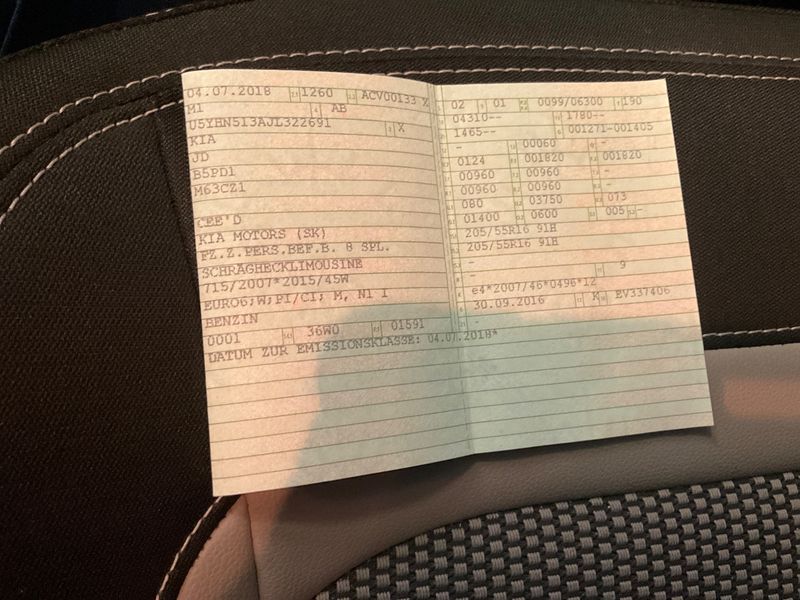 04.07.2018 1260 ACV00133 Z
M1 AB
U5YHN513AJL322691 X
KIA
JD
B5PD1
M63CZ1
CEE'D
KIA MOTORS (SK)
FZ.Z.PERS.BEF.B. 8 SPL.
SCHRÄGHECKLIMOUSINE
715/2007*2015/45W
EURO6;W;PI/CI; M, N1 I
BENZIN
0001 36W0 01591
DATUM ZUR EMISSIONSKLASSE: 04.07.2018*
02 01 0099/06300 190
04310-- 1780--
1465-- 001271-001405
- 00060 -
0124 001820 001820
00960 00960 -
00960 00960 -
080 03750 073
01400 0600 005 -
205/55R16 91H
205/55R16 91H
-
- 9
e4*2007/46*0496*12
30.09.2016 K EV337406